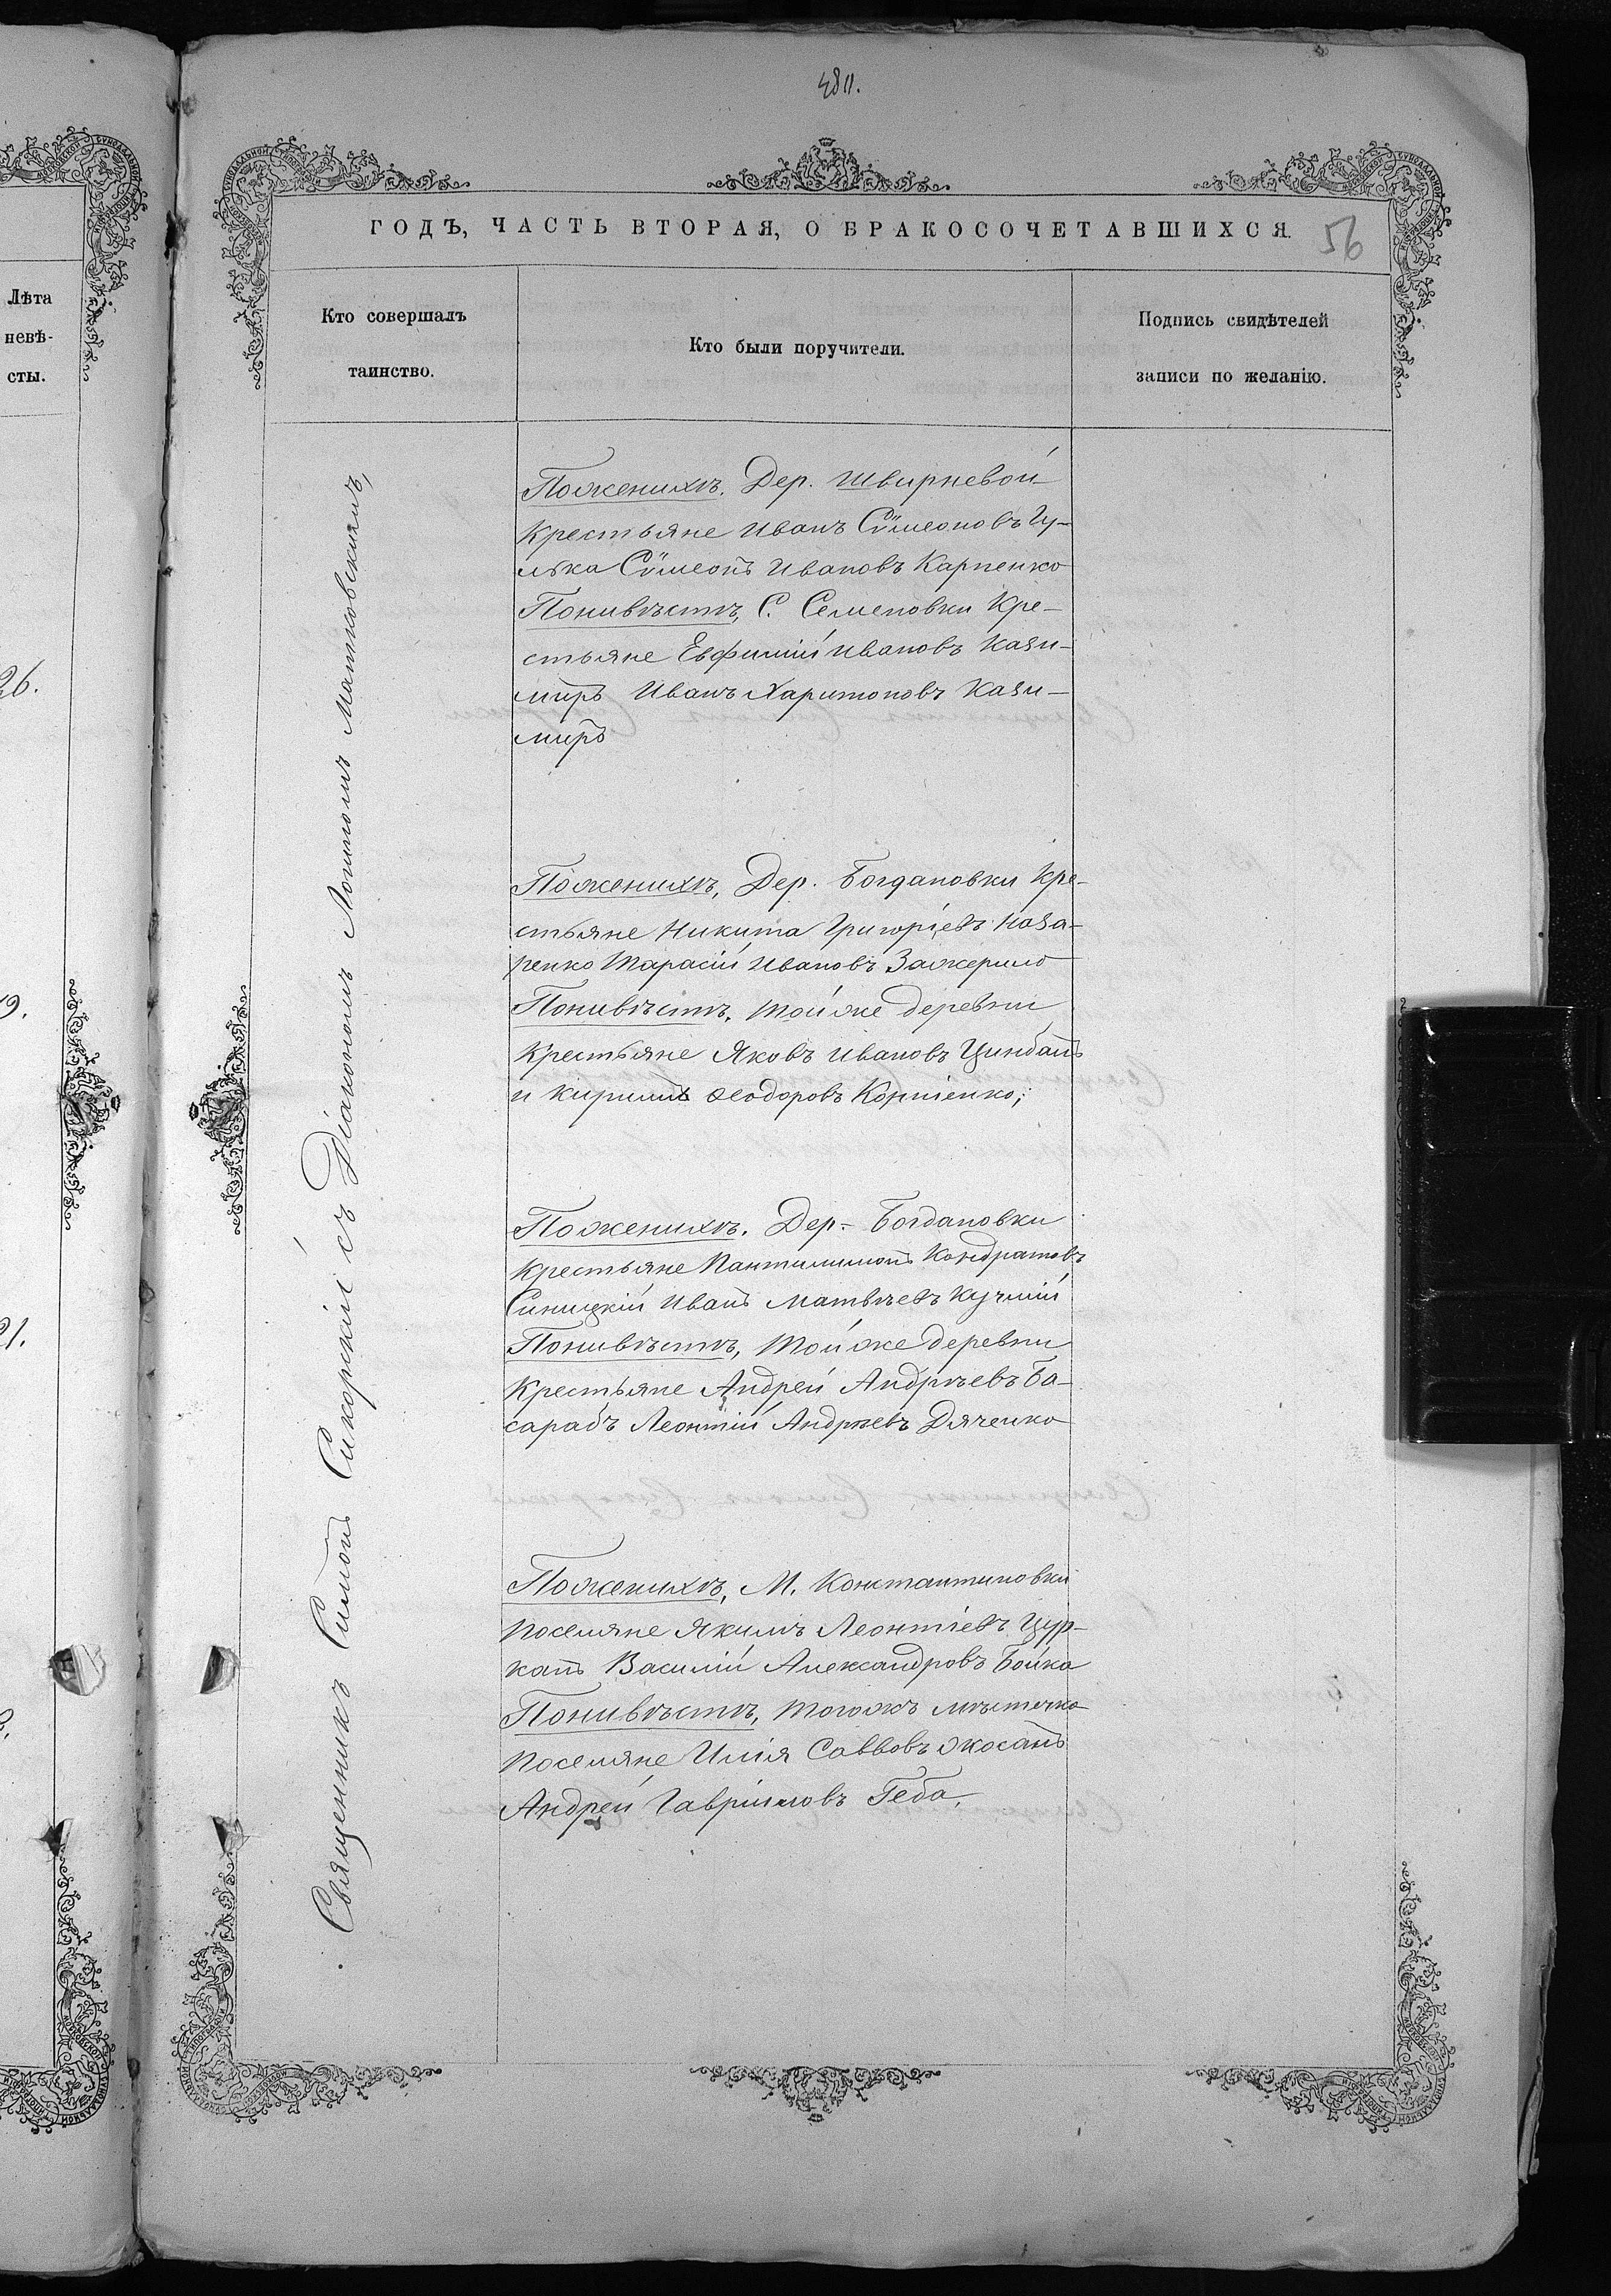 481.
ГОДЪ, ЧАСТЬ ВТОРАЯ, О БРАКОСОЧЕТАВШИХСЯ.
56
Лѣта
невѣ-
сты.
Кто совершалъ
таинство.
Кто были поручители.
Подпись свидѣтелей
записи по желанію.
26.
19.
21.
Священникъ Симонъ Сикорскій съ Діакономъ Маньковскимъ,
По женихѣ. Дер. Швирневой
крестьяне Иванъ Сѵмеоновъ Гу-
лька Сѵмеонъ Ивановъ Карпенко
По нивѣстѣ, С. Семеновки кре-
стьяне Евфимій Ивановъ Кази-
миръ Иванъ Харитоновъ Кази-
миръ
По женихѣ, Дер. Богдановки кре-
стьяне Никита Григоріевъ Каза-
ренко Тарасій Ивановъ Зажерило
По нивѣстѣ, той же деревни
крестьяне Яковъ Ивановъ Цинбалъ
и Кирилъ Ѳеодоровъ Корніенко;
По женихѣ. Дер. Богдановки
крестьяне Пантилимонъ Кондратовъ
Синицкій Иванъ Матвѣевъ Кучмій
По нивѣстѣ, той же деревни
крестьяне Андрей Андрѣевъ Ба-
сарабъ Леонтій Андрѣевъ Дяченко
По женихѣ, М. Константиновки
поселяне Якимъ Леонтіевъ Цур-
канъ Василій Александровъ Бойко
По нивѣстѣ, тогожъ мѣстечка
поселяне Илія Саввовъ
Андрей Гавріиловъ Геба.